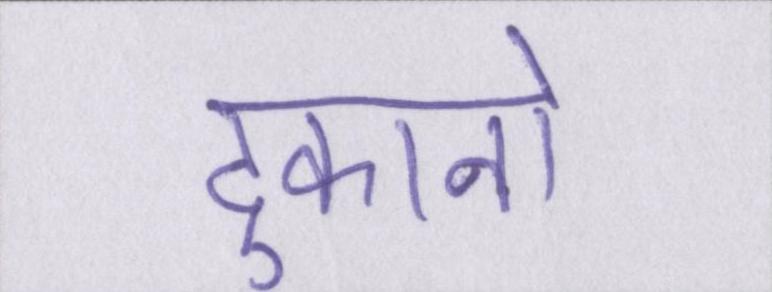 दुकानो